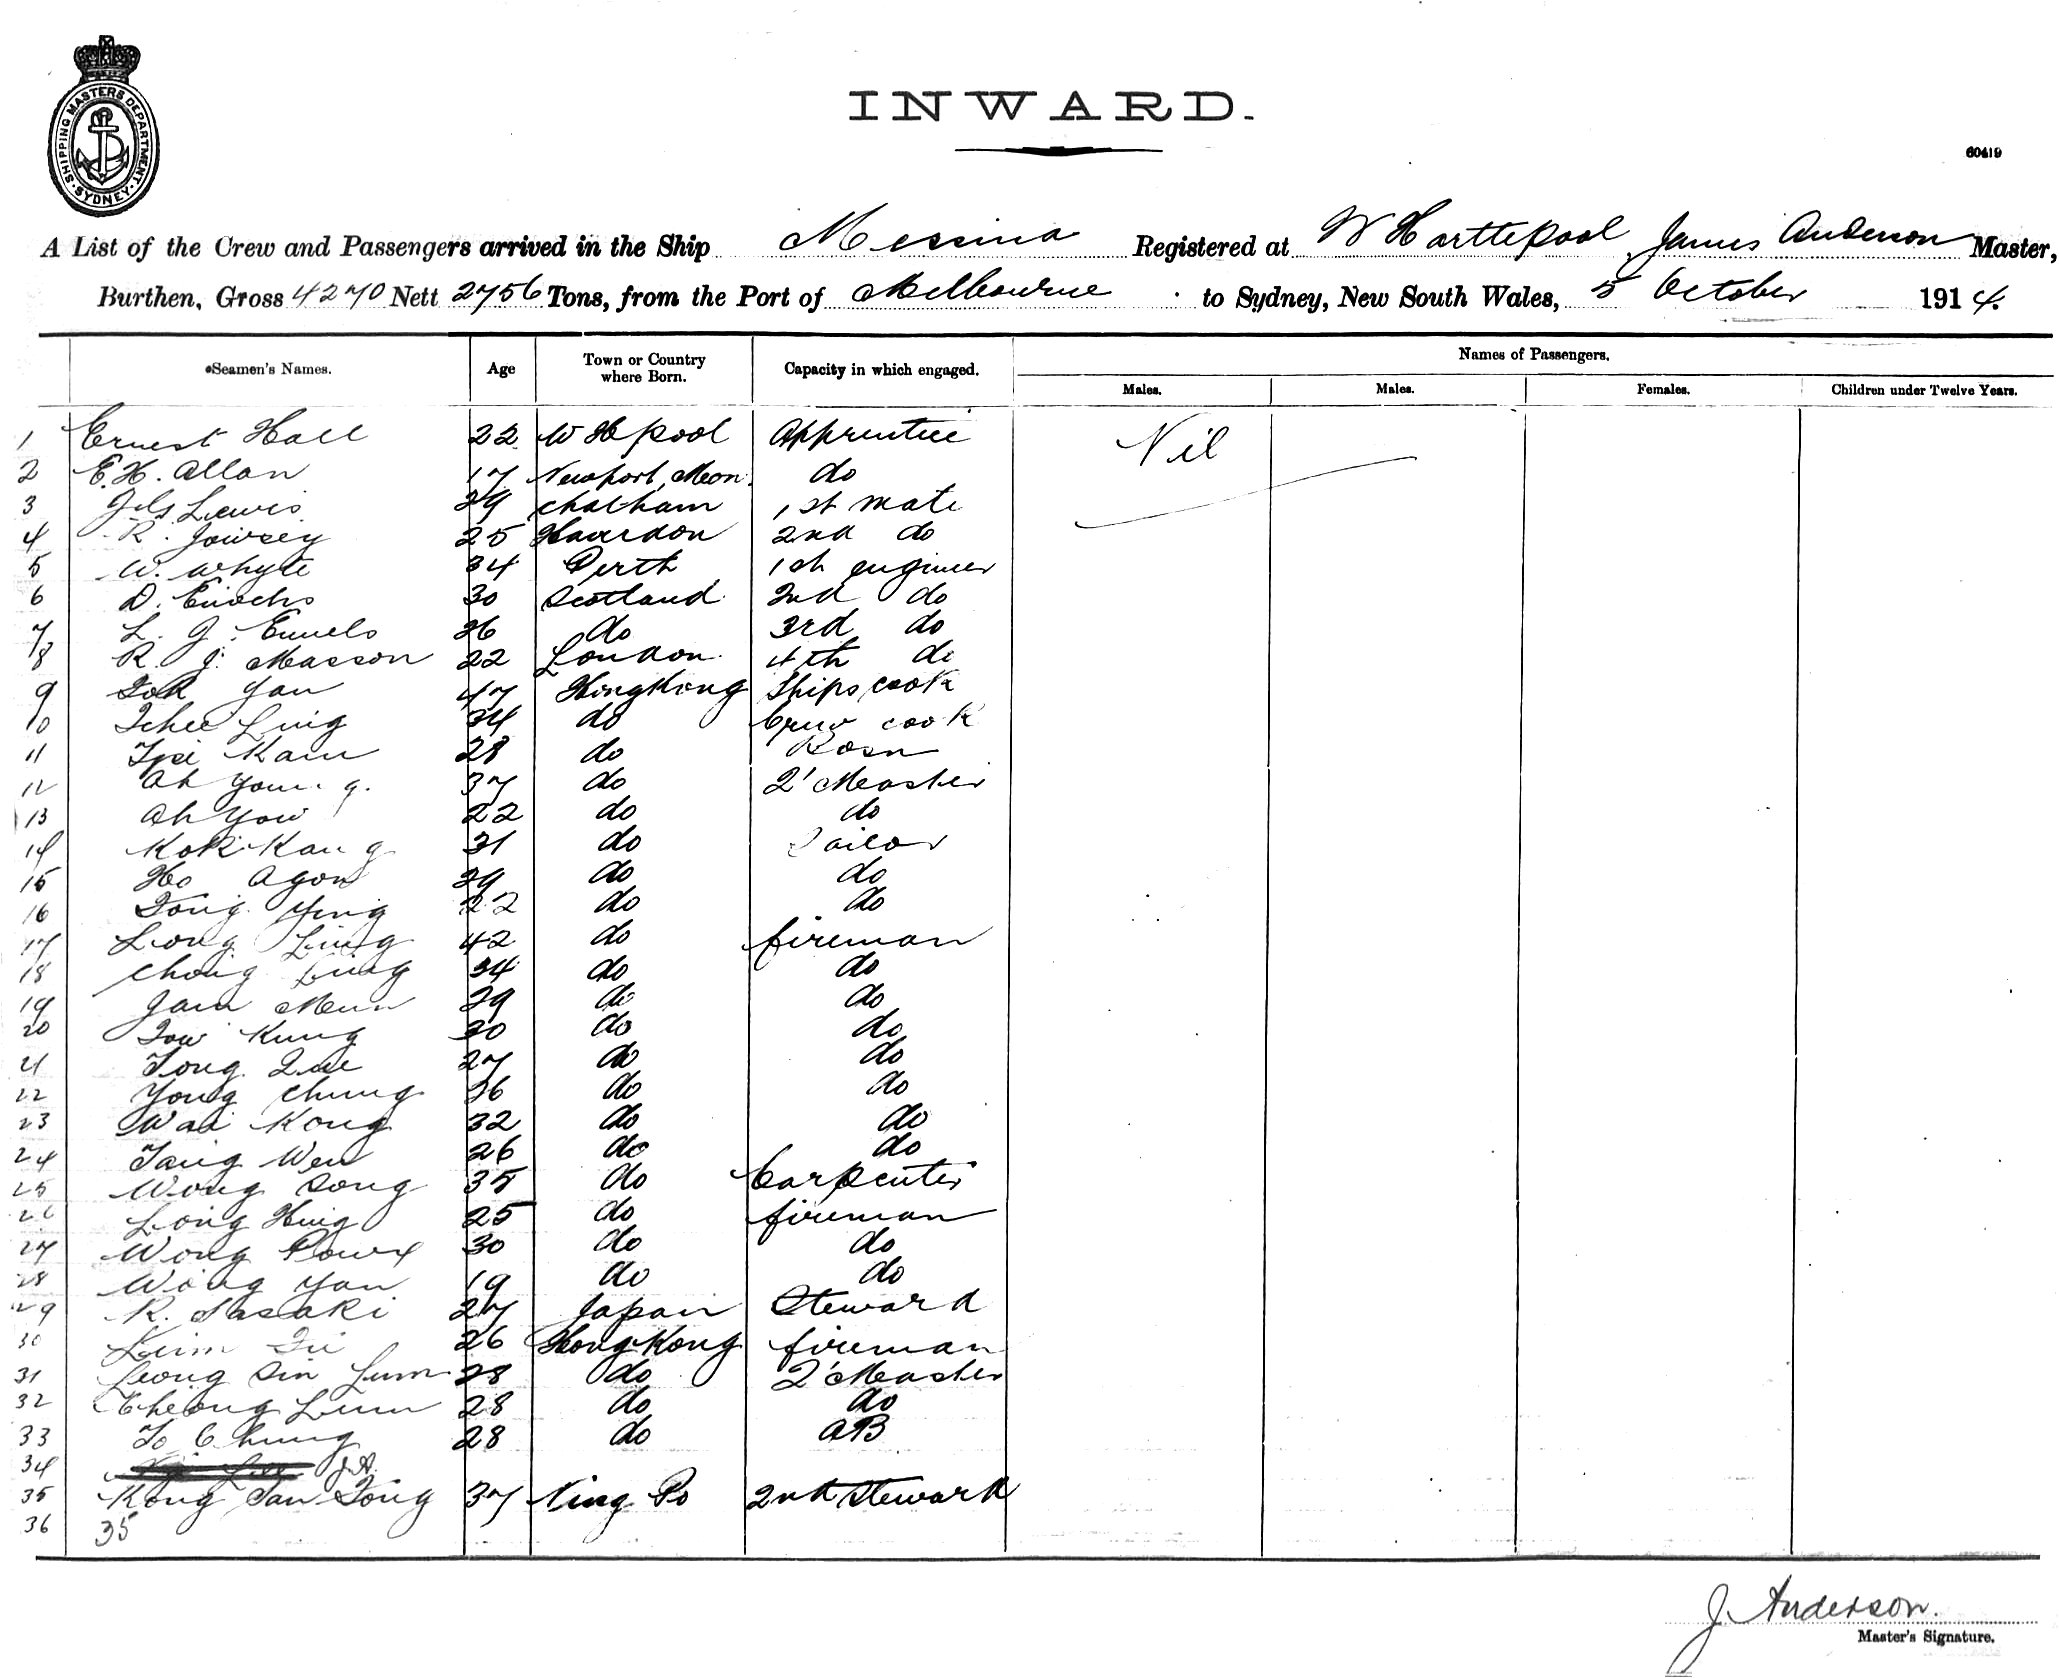 SHIPPING MASTERS DEPARTMENT · SYDNEY ·
INWARD.
60419
A List of the Crew and Passengers arrived in the Ship Messina Registered at W Harttepool, James Anderson Master,
Burthen, Gross 4270 Nett 2756 Tons, from the Port of Melbourne to Sydney, New South Wales, 5 October 1914.
Seamen's Names. Age Town or Country where Born. Capacity in which engaged. Names of Passengers.
Males. Males. Females. Children under Twelve Years.
1 Ernest Hall 22 W Hpool Apprentice Nil
2 E. H. Allan 17 Newport, Mon. do
3 Lewis 29 Chatham 1st mate
4 R. Jowsey 25 2nd do
5 W. Whyte 34 Perth 1st engineer
6 D. 30 Scotland 2nd do
7 L. J. 26 do 3rd do
8 R. J. Masson 22 London 4th do
9 Yan 47 HongKong Ships cook
10 Ling 34 do Crew cook
11 Kam 28 do Bosn
12 Ah Young. 37 do 2' Master
13 Ah Yow 22 do do
14 Kok Kang 31 do Sailor
15 Ho Agon 29 do do
16 Tong Ying 22 do do
17 Leong Ling 42 do fireman
18 Chong Ling 34 do do
19 Jam Mun 29 do do
20 Tow Kung 30 do do
21 Tong 27 do do
22 Yong Chung 36 do do
23 Wai Kong 32 do do
24 Tang Wen 26 do do
25 Wong Song 35 do Carpenter
26 Long Hing 25 do fireman
27 Wong 30 do do
28 Wong Yan 19 do do
29 R. Sasaki 27 Japan Steward
30 26 HongKong fireman
31 Leong Sin Lum 28 do 2' Master
32 Cheong Lum 28 do do
33 To Chung 28 do AB
34 J.A.
35 Kong Tan Tong 37 Ning Po 2nd Steward
36 35
J. Anderson.
Master's Signature.